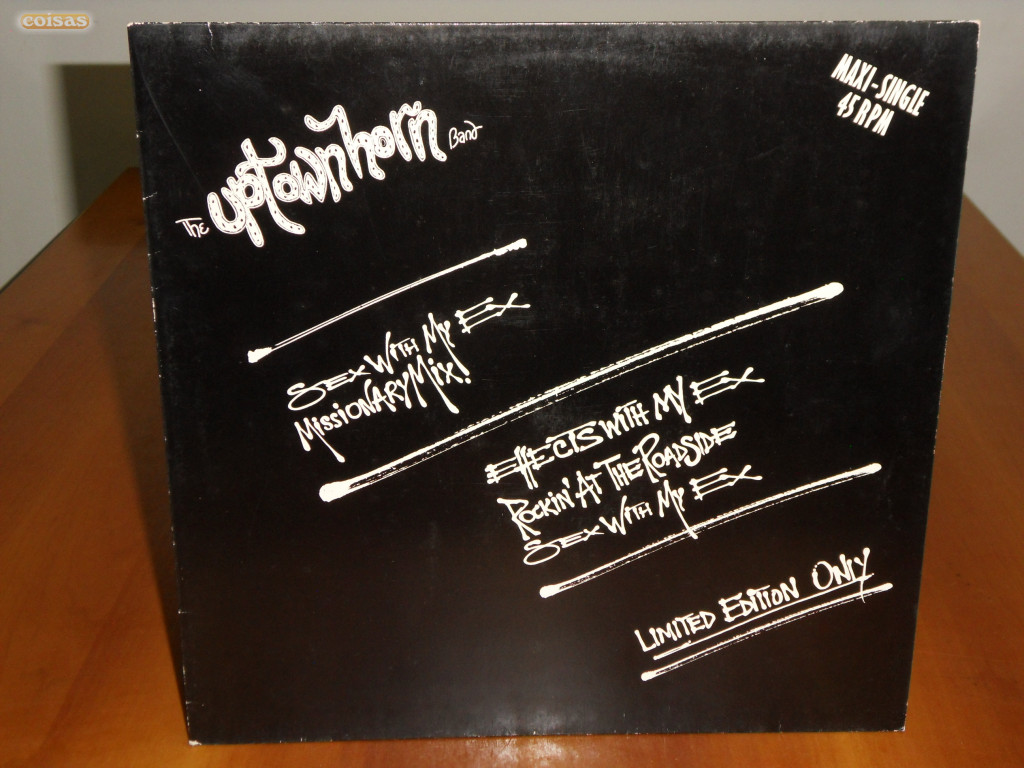 coisas
MAXI-SINGLE
45 RPM
The uptownhorn Band
SEX WITH MY EX
MISSIONARY MIX!
EFFECTS WITH MY EX
ROCKIN' AT THE ROADSIDE
SEX WITH MY EX
LIMITED EDITION ONLY